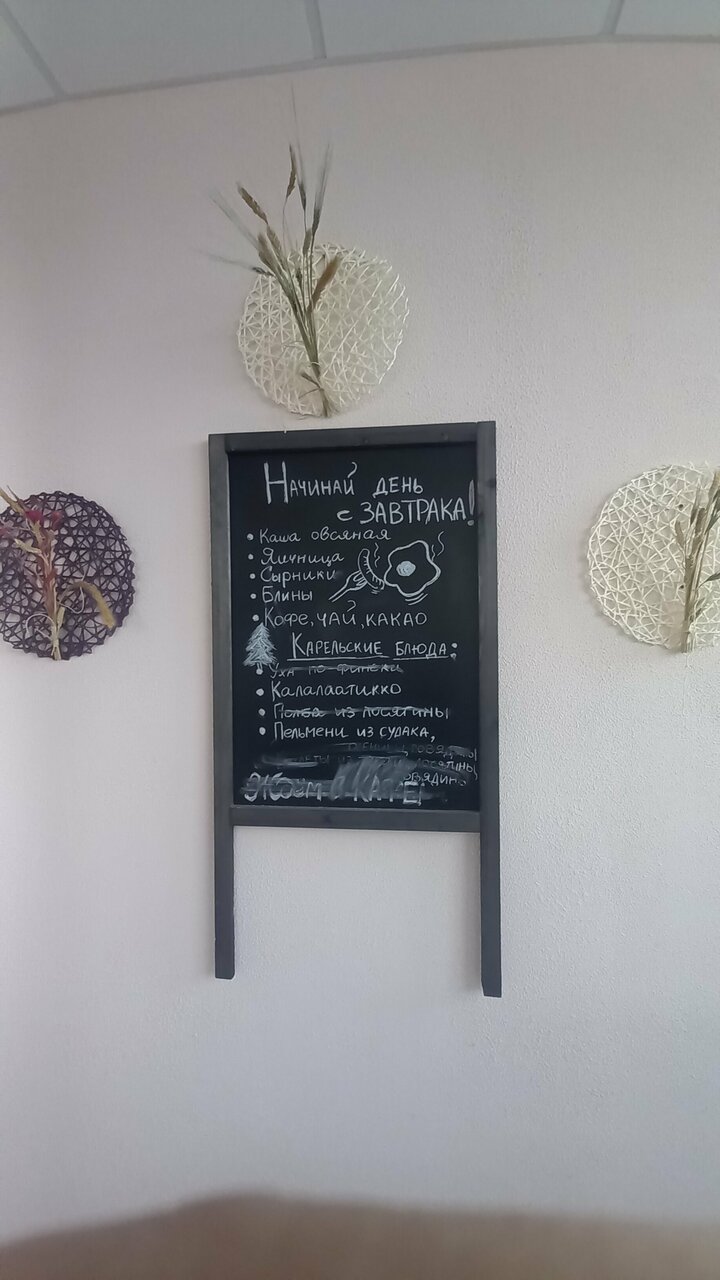 Начинай день
с ЗАВТРАКА!
• Каша овсяная
• Яичница
• Сырники
• Блины
• Кофе, чай, какао
Карельские блюда:
• Уха по-фински
• Калалаатикко
• из лосятины
• Пельмени из судака,